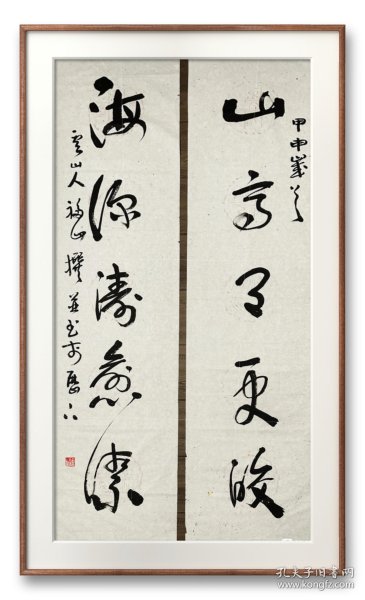 甲申岁
山高月更皎
海深涛愈
云山人 撰并书于历下
孔夫子旧书网
www.kongfz.com